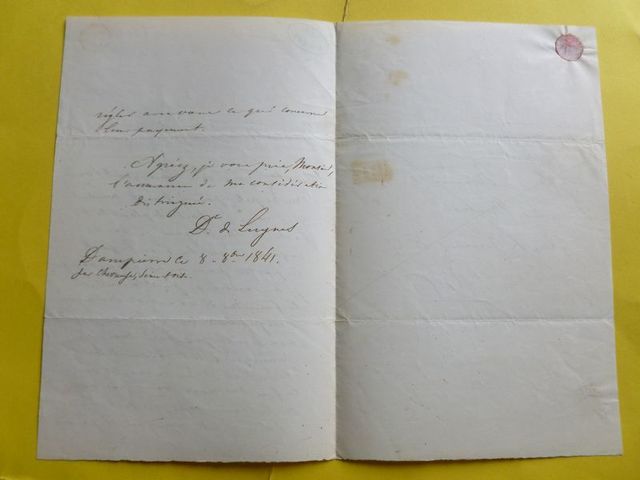 régler avec vous ce qui concerne
leur payement.
Agréez, je vous prie, Monsieur,
l'assurance de ma considération
distinguée.
D. de Luynes
Dampierre ce 8 - 8bre 1841.
par Chevreuse, Seine et Oise